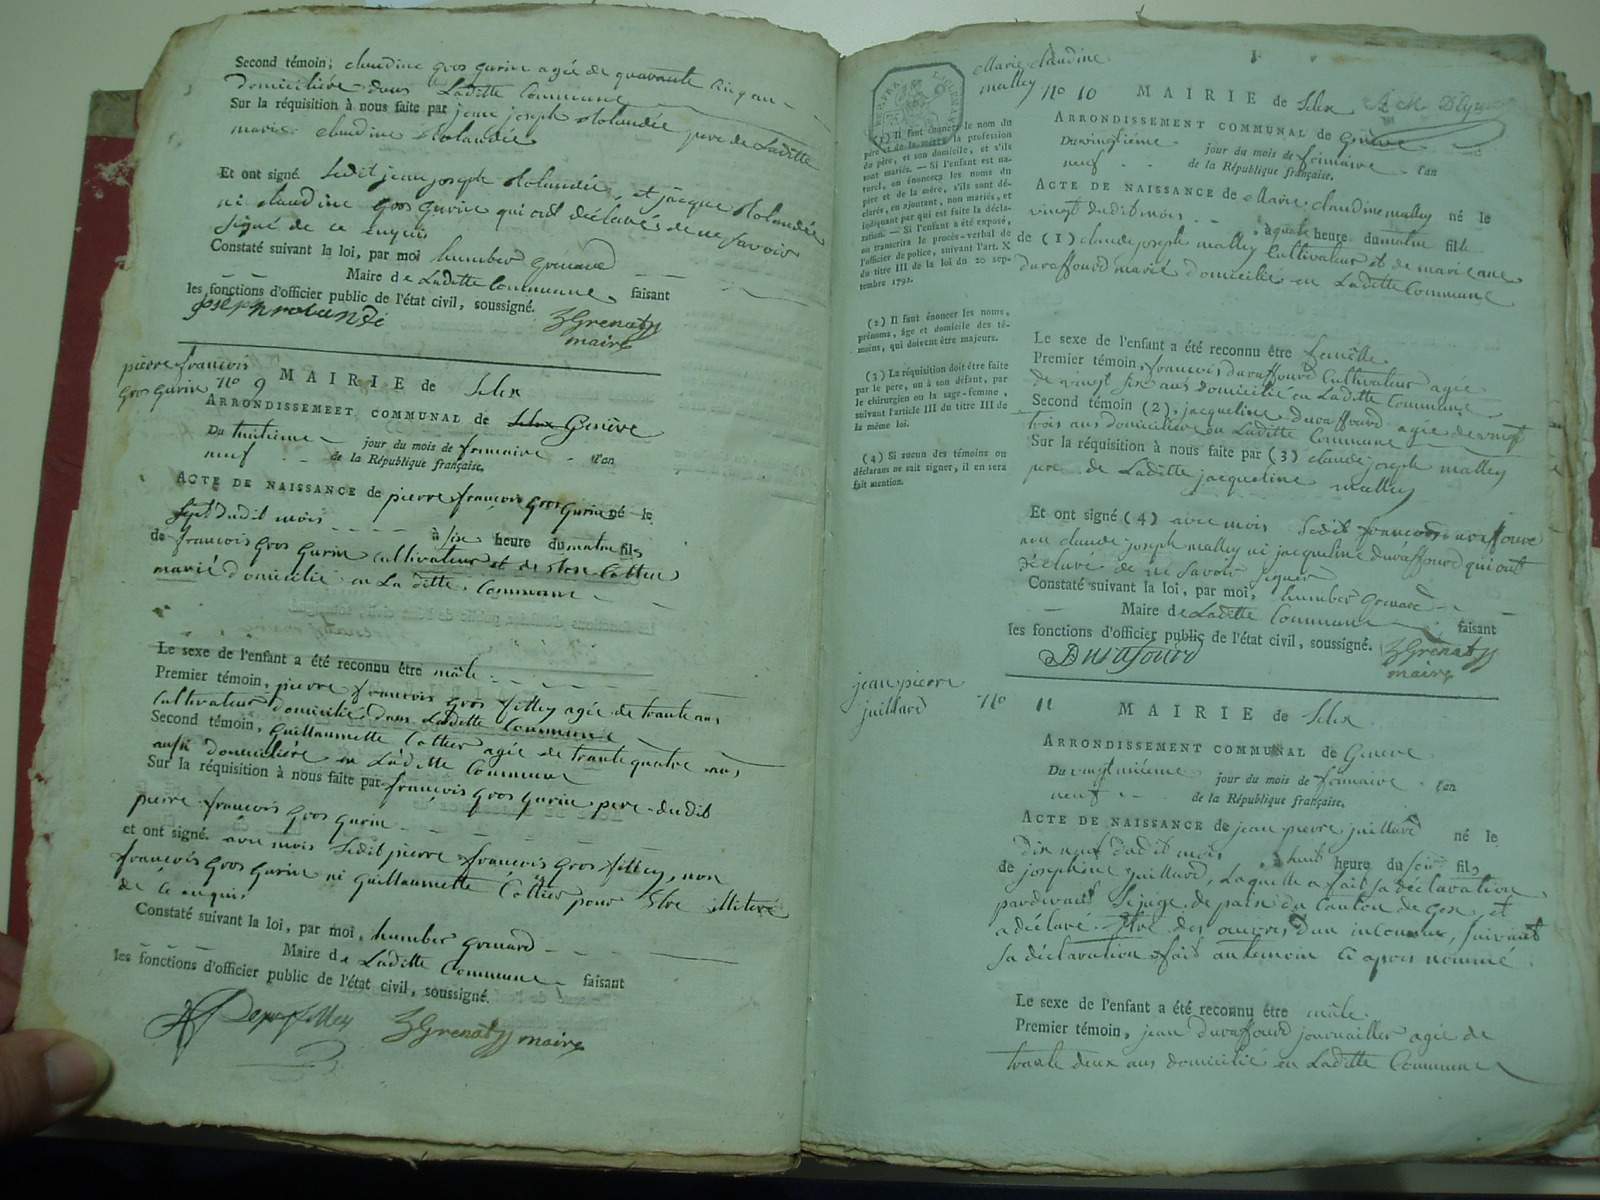 Second témoin; claudine gros gurin agée de quarante cinq ans
domiciliée dans Laditte Commune
Sur la réquisition à nous faite par jean joseph Rolandée pere de Laditte
marie claudine Rolandée
Et ont signé. Ledit jean joseph Rolandée, et jacque Rolandée
ni claudine gros gurin qui ont déclarés de ne savoir
signé de ce enquis
Constaté suivant la loi, par moi humber grenard
Maire de Laditte Commune faisant
les fonctions d'officier public de l'état civil, soussigné.
Joseph
Grenat
maire
pierre françois
gros gurin no 9 MAIRIE de Lelex
ARRONDISSEMEET COMMUNAL de Genève
Du huitieme jour du mois de frimaire l'an
neuf de la République française.
ACTE DE NAISSANCE de pierre françois gros gurin né le
sept dudit mois à six heure du matin fils
de françois gros gurin cultivateur et de
marié domicilié en La ditte Commune
Le sexe de l'enfant a été reconnu être mâle
Premier témoin, pierre françois gros filley agée de trante ans
cultivateur domicilié dans Laditte Commune
Second témoin, guillaumette Cottier agée de trante quatre ans
aussi domiciliére en Laditte Commune
Sur la réquisition à nous faite par françois gros gurin pere dudit
pierre françois gros gurin
et ont signé. avec mois Ledit pierre françois gros filley, non
françois gros gurin ni guillaumette Cottier pour Etre illiteré
de ce enquis
Constaté suivant la loi, par moi, humber grenard
Maire de Laditte Commune faisant
les fonctions d'officier public de l'état civil, soussigné.
Grenat maire
Marie claudine
malley no 10 MAIRIE de Lelex
ARRONDISSEMENT COMMUNAL de Genève
Du vingtiéme jour du mois de frimaire l'an
neuf de la République française.
ACTE DE NAISSANCE de Marie claudine malley né le
vingt dudit mois à quatre heure du matin fille
de (1) claude joseph malley Cultivateur et de marie ane
duraffourd marié domiciliés en Laditte Commune
(1) Il faut énoncer le nom du
père et de la mère, la profession
du père, et son domicile, et s'ils
sont mariés. — Si l'enfant est na-
turel, on énoncera les noms du
père et de la mère, s'ils sont dé-
clarés, en ajoutant, non mariés, et
indiquant par qui est faite la décla-
ration. — Si l'enfant a été exposé,
on transcrira le procès-verbal de
l'officier de police, suivant l'art. X
du titre III de la loi du 20 sep-
tembre 1792.
(2) Il faut énoncer les noms,
prénoms, âge et domicile des té-
moins, qui doivent être majeurs.
(3) La réquisition doit être faite
par le père, ou à son défaut, par
le chirurgien ou la sage-femme,
suivant l'article III du titre III de
la même loi.
(4) Si aucun des témoins ou
déclarans ne sait signer, il en sera
fait mention.
Le sexe de l'enfant a été reconnu être femelle
Premier témoin, françois duraffourd Cultivateur agée
de vingt six ans domicilié en Laditte Commune
Second témoin (2), jacqueline duraffourd agée de vingt
trois ans domiciliére en Laditte Commune
Sur la réquisition à nous faite par (3) claude joseph malley
pere de Laditte jacqueline malley
Et ont signé (4) avec mois Ledit françois duraffourd
non claude joseph malley ni jacqueline duraffourd qui ont
déclaré de ne savoir signer
Constaté suivant la loi, par moi, humber grenard
Maire de Laditte Commune faisant
les fonctions d'officier public de l'état civil, soussigné.
Durafourd
Grenat
maire
jean pierre
juillard no 11 MAIRIE de Lelex
ARRONDISSEMENT COMMUNAL de Geneve
Du vingt uniéme jour du mois de frimaire l'an
neuf de la République française.
ACTE DE NAISSANCE de jean pierre juillard né le
dix neuf dudit mois à huit heure du soir fils
de josephine juillard, Laquelle a fait sa déclaration
pardevant Le juge de paix du Canton de Gex et
a déclaré Etre des œuvres d'un inconnue, suivant
sa déclaration fait au temoin Ci apres nommé
Le sexe de l'enfant a été reconnu être mâle
Premier témoin, jean duraffourd journailler agée de
trante deux ans domicilié en Laditte Commune